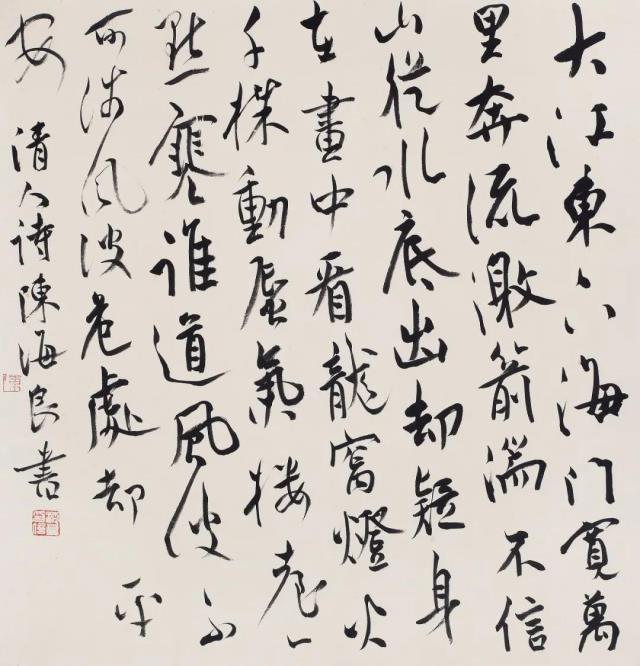 大江東下海門寬萬
里奔流激箭湍不信
山從水底出却疑身
在畫中看龍窩燈火
千檣動蜃氣樓臺一
點寒誰道風波不
可涉風波危處却平
安清人詩陳海良書